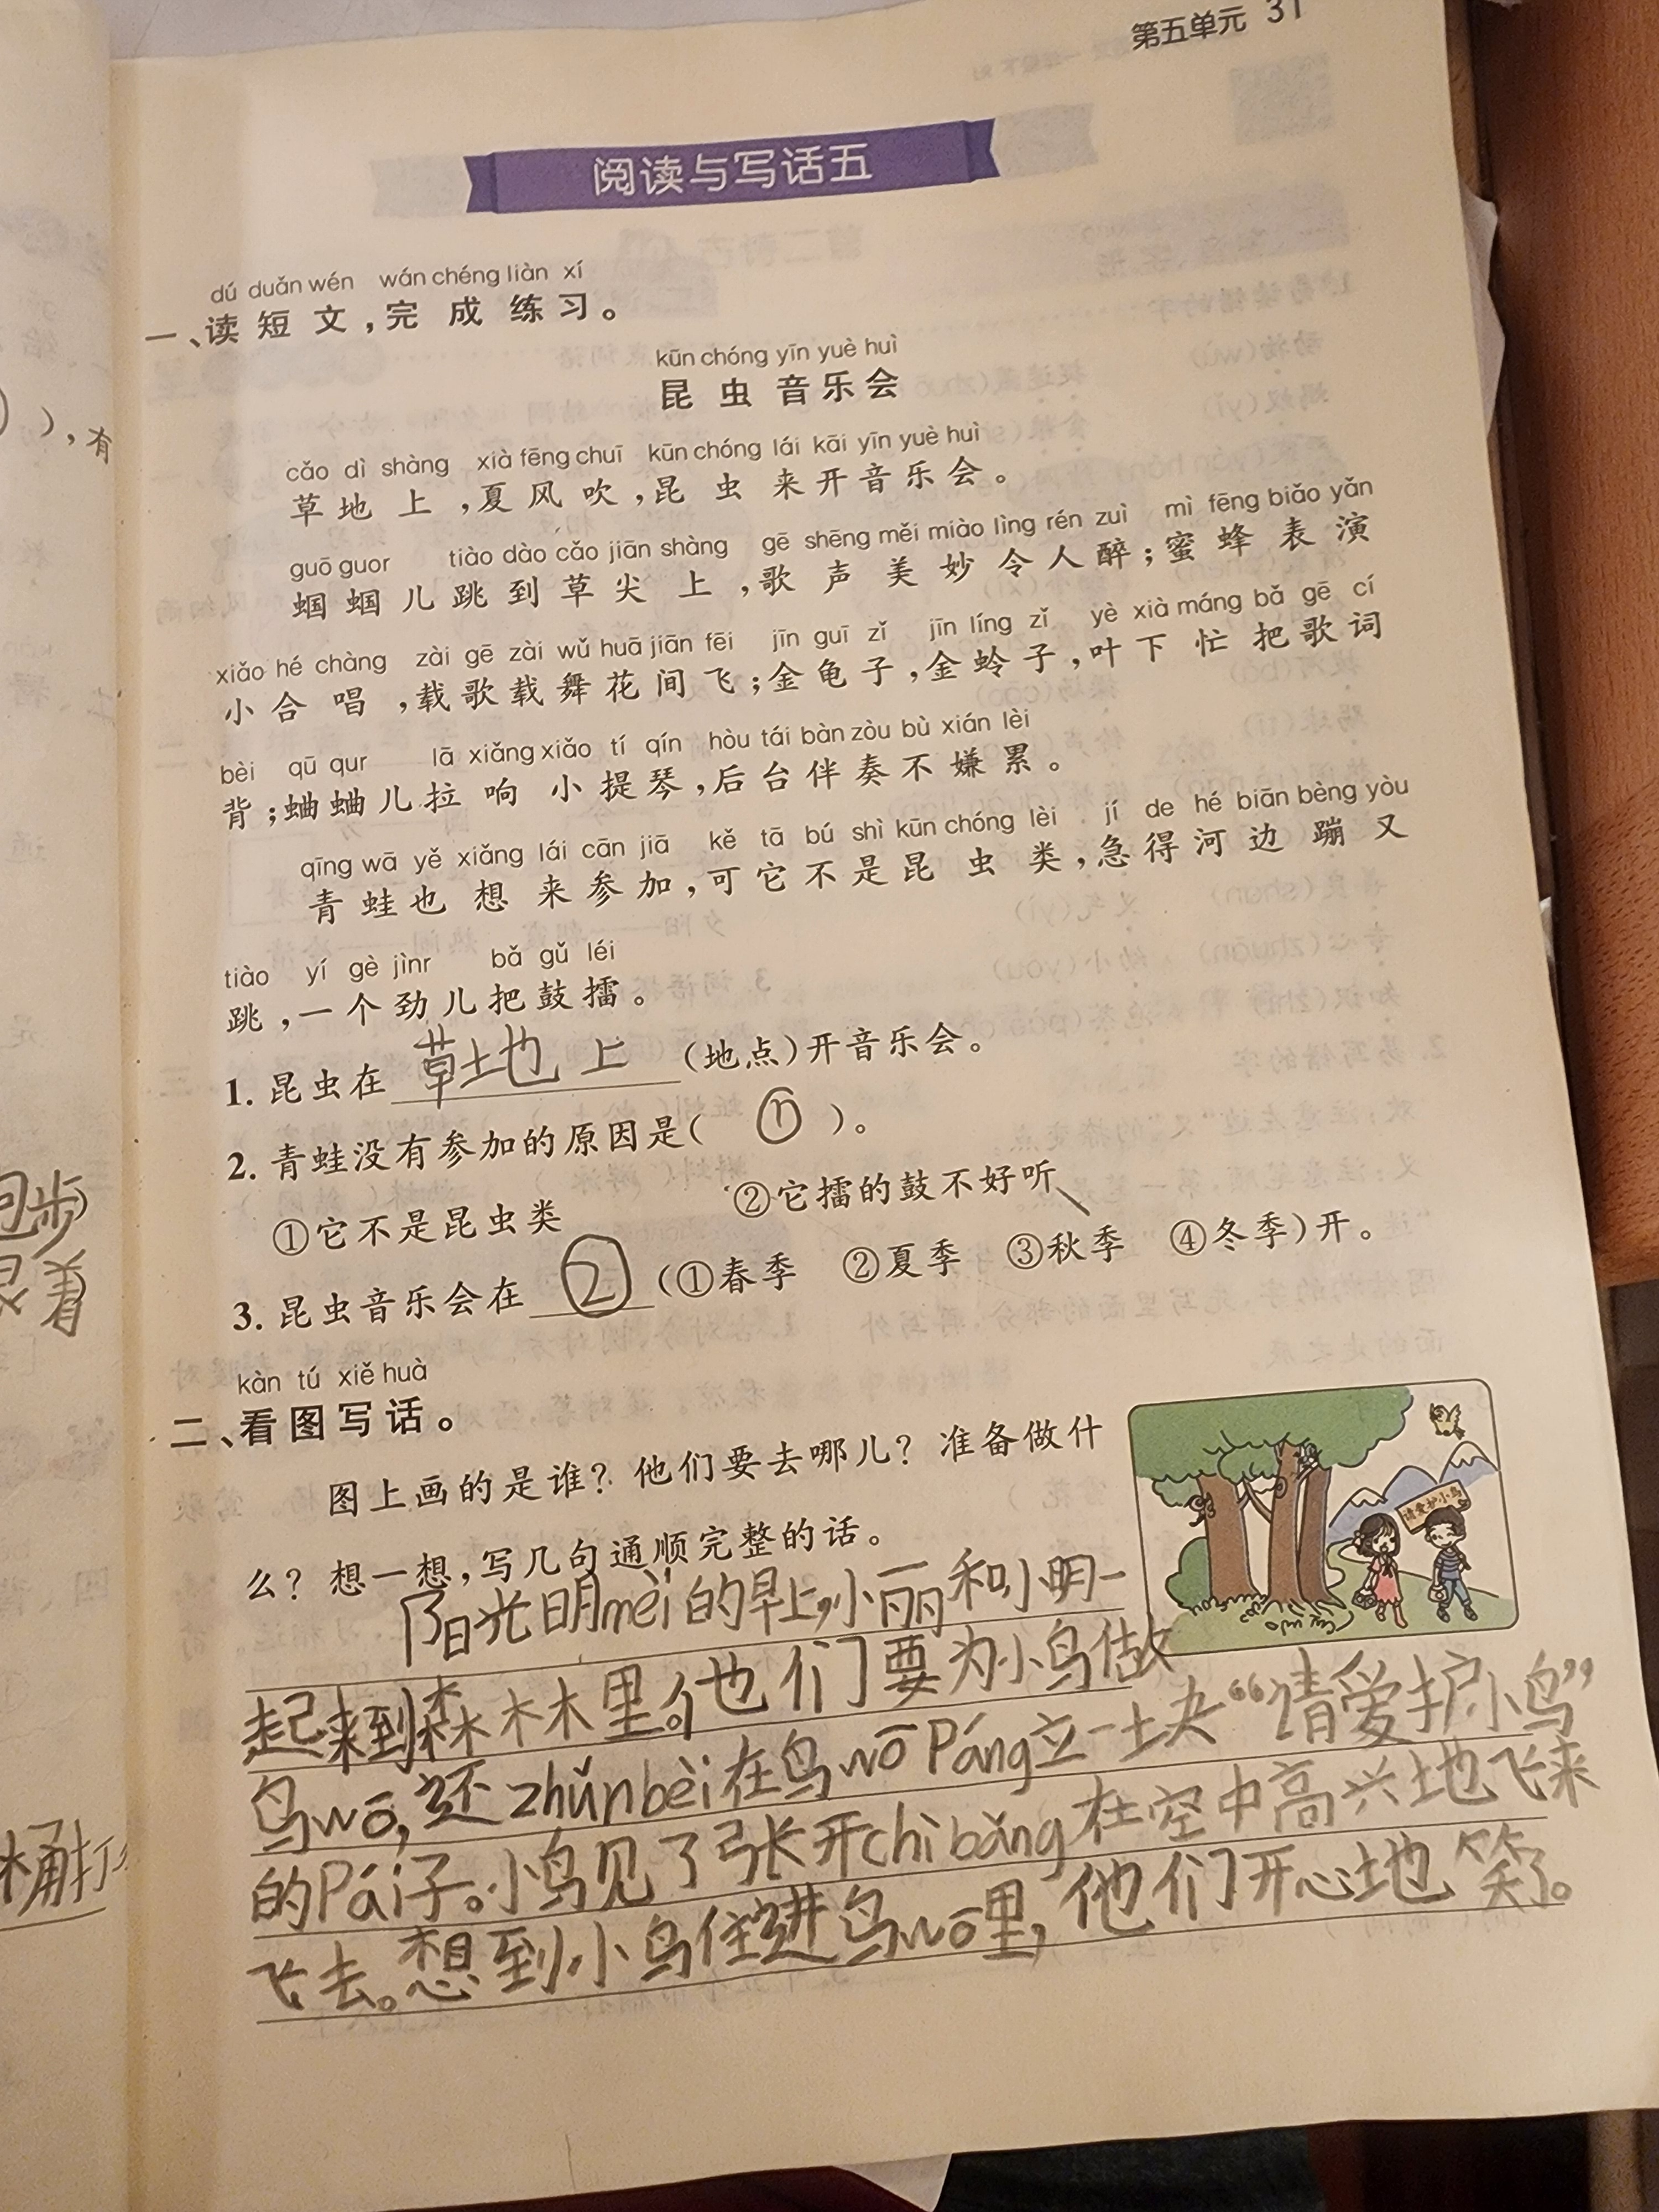 第五单元 31
阅读与写话五
dú duǎn wén wán chéng liàn xí
一、读短文,完成练习。
kūn chóng yīn yuè huì
昆虫音乐会
cǎo dì shàng xià fēng chuī kūn chóng lái kāi yīn yuè huì
草地上,夏风吹,昆虫来开音乐会。
guō guor tiào dào cǎo jiān shàng gē shēng měi miào lìng rén zuì mì fēng biǎo yǎn
蝈蝈儿跳到草尖上,歌声美妙令人醉;蜜蜂表演
xiǎo hé chàng zài gē zài wǔ huā jiān fēi jīn guī zǐ jīn líng zǐ yè xià máng bǎ gē cí
小合唱,载歌载舞花间飞;金龟子,金蛉子,叶下忙把歌词
bèi qū qur lā xiǎng xiǎo tí qín hòu tái bàn zòu bù xián lèi
背;蛐蛐儿拉响小提琴,后台伴奏不嫌累。
qīng wā yě xiǎng lái cān jiā kě tā bú shì kūn chóng lèi jí de hé biān bèng yòu
青蛙也想来参加,可它不是昆虫类,急得河边蹦又
tiào yí gè jìnr bǎ gǔ léi
跳,一个劲儿把鼓擂。
1. 昆虫在草地上(地点)开音乐会。
2. 青蛙没有参加的原因是( ① )。
①它不是昆虫类 ②它擂的鼓不好听
3. 昆虫音乐会在②(①春季 ②夏季 ③秋季 ④冬季)开。
kàn tú xiě huà
二、看图写话。
图上画的是谁?他们要去哪儿?准备做什
么?想一想,写几句通顺完整的话。
请爱护小鸟
阳光明mèi的早上,小丽和小明一
起来到森林里。他们要为小鸟做
鸟wō,还zhǔnbèi在鸟wō Páng立一块“请爱护小鸟”
的Pái子。小鸟见了张开chìbǎng在空中高兴地飞来
飞去。想到小鸟住进鸟wō里,他们开心地笑了。